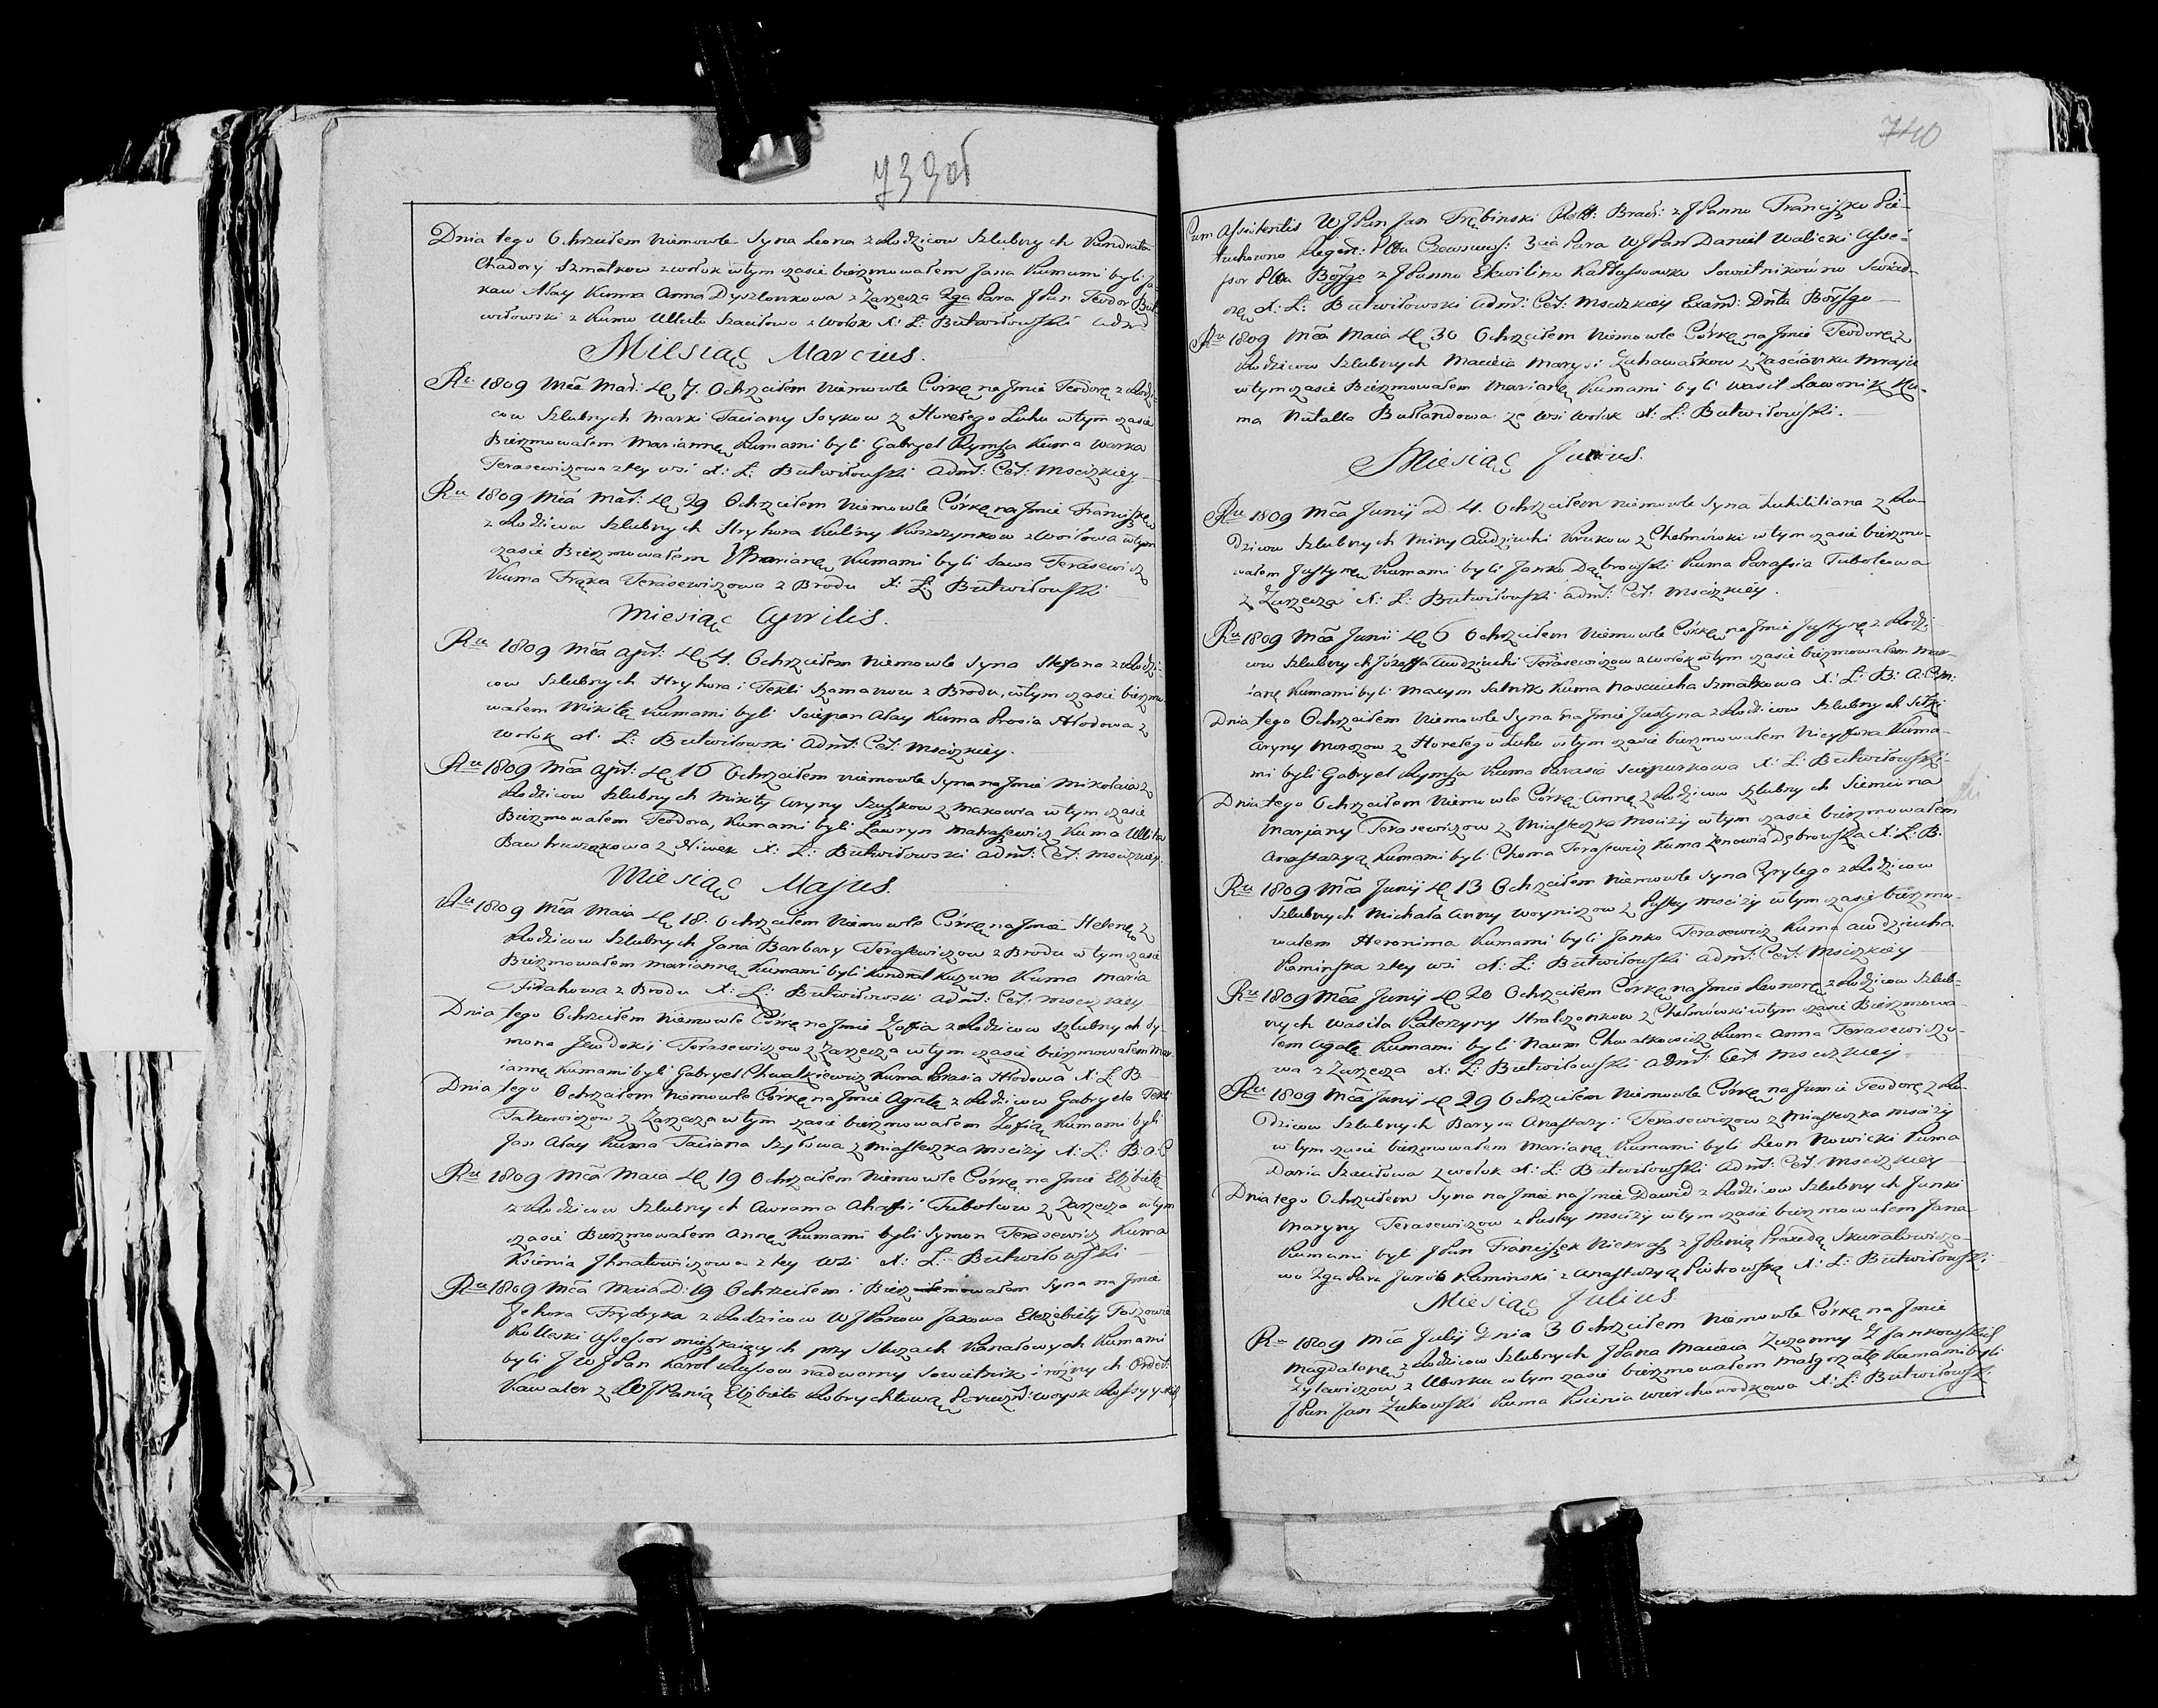 739об
Dnia tego Ochrzciłem Niemowle Syna Leona z Rodzicow Szlubnych Kundrata
Chadory Szmatkow z Wołok w tym czasie bierzmowałem Jana Kumami byli Ja-
kow Ałay Kuma Anna Dyszlonkowa z Zarzecza 2ga Para JPan Teodor But-
wiłowski z Kumo Ullito Szaciłowo z Wołok X: L: Butwiłowski Adm:
Miesiąc Marcius.
Ru 1809 Mca Mar: dę 7. Ochrzciłem Niemowle Córkę na Jmie Teodorę z Rodzi-
cow Szlubnych Marki Taciany Soykow z Horełego Łuhu w tym czasie
Bierzmowałem Mariannę Kumami byli Gabryel Rymsza Kuma Warka
Terasewiczowa z tey wsi X: L: Butwiłowski Adm: Cer: Mscizkiey
Ru 1809 Mca Mar: dę 29 Ochrzciłem Niemowle Córkę na Jmie Franciszkę
z Rodzicow Szlubnych Hryhora Kuliny w tym
czasie Bierzmowałem Mariannę Kumami byli Sawa Terasewicz
Kuma Terasewiczowa z Brodu X: L: Butwiłowski
Miesiąc Aprilis.
Ru 1809 Mca Apr: dę 4. Ochrzciłem Niemowle Syna Stefana z Rodzi-
cow Szlubnych Hryhora i Tekli Szamanow z Brodu, w tym czasie bierzmo-
wałem Mikitę Kumami byli Sciepan Ałay Kuma Prosia Hłodowa z
Wołok X: L: Butwiłowski Adm: Cer: Mscizkiey.
Ru 1809 Mca Apr: dę 16 Ochrzciłem Niemowle Syna na Jmie Mikołaia z
Rodzicow Szlubnych Mikity Aryny Szuszkow z Makowia w tym czasie
Bierzmowałem Teodora, Kumami byli Ławryn Matrasewicz Kuma Ullita
z Niwek X: L: Butwiłowski Adm: Cer: Mscizkiey.
Miesiąc Majus.
Ru 1809 Mca Maia dę 18. Ochrzciłem Niemowle Córkę na Jmie Helenę z
Rodzicow Szlubnych Jana Barbary Terasewiczow z Brodu w tym czasie
Bierzmowałem Mariannę Kumami byli Kondrat Kuzura Kuma Maria
z Brodu X: L: Butwiłowski Adm: Cer: Mscizkiey
Dnia tego Ochrzciłem Niemowle Córkę na Jmie Zofia z Rodzicow Szlubnych Sy-
mona Jewdokii Terasewiczow z Zarzecza w tym czasie bierzmowałem Mar-
iannę Kumami byli Gabryel Chwalkiewicz Kuma Parasia Hłodowa X: L: B
Dnia tego Ochrzciłem Niemowle Córkę na Jmie Agatę z Rodzicow Gabryela Tekli
Tałkowiczow z Zarzecza w tym czasie bierzmowałem Zofią Kumami byli
Jan Ałay Kuma Taciana Szyłowa z Miasteczka Mscizy X: L: B: A: C
Ru 1809 Mca Maia dę 19 Ochrzciłem Niemowle Córkę na Jmie Elzbietę
z Rodzicow Szlubnych Awrama Ahafii Tubolcow z Zarzecza w tym
czasie Bierzmowałem Annę Kumami byli Symon Terasewicz Kuma
Ksienia Jhnatowiczowa z tey wsi X: L: Butwiłowski
Ru 1809 Mca Maia D: 19 Ochrzciłem i Bierzmowałem Syna na Jmie
Jehora Frydryka z Rodzicow WJPanow Jakowa Elezebiety
Kolleski Assessor mieszkaiących przy Sluzach Kanałowych Kumami
byli JWJPan Karol nadworny Sowietnik i rożnych Order:
Kawaler z WJPanią Elzbieto Porucz: woysk Rossyyskich
740
Cum Assistentis WJPan Jan Trębinski Rott: Bracł: z JPanno Franciszko Pie-
tuchowno Regent: Ptta 3cia Para WJPan Daniel Walicki Asse-
ssor Ptta Borysgo z JPanno Ekwilino Sowietnikowno
X: L: Butwiłowski Adm: Cer: Mscizkiey Exam: Dntu Borysgo
Ru 1809 Mca Maia dę 30 Ochrzciłem Niemowle Córkę na Jmie Teodorę z
Rodzicow Szlubnych Macieia Marysi Zuhawałkow z Zaścianku
w tym czasie Bierzmowałem Mariannę Kumami byli Wasil Ku-
ma Natalla Bułandowa ze wsi Wołok X: L: Butwiłowski.
Miesiąc Junius.
Ru 1809 Mca Junij D. 4. Ochrzciłem Niemowle Syna z Ro-
dzicow Szlubnych Miny Audziuchi Krukow z Chołmówki w tym czasie bierzmo-
wałem Justynę Kumami byli Janko Dąbrowski Kuma Parasia Tubolcowa
z Zarzecza X: L: Butwiłowski Adm: Cer: Mscizkiey.
Ru 1809 Mca Junii dę 6 Ochrzciłem Niemowle Córkę na Jmie Justynę z Rodzi-
cow Szlubnych Józefa Audziuchi Terasewiczow z Wołok w tym czasie bierzmowałem Mar-
iannę Kumami byli Maxym Salnik Kuma Nasciucha Szmatkowa X: L: B: A: C: M:
Dnia tego Ochrzciłem Niemowle Syna na Jmie Justyna z Rodzicow Szlubnych
Aryny Morozow z Horełego Łuhu w tym czasie bierzmowałem Nicyfora Kuma-
mi byli Gabryel Rymsza Kuma Parasia X: L: Butwiłowski
Dnia tego Ochrzciłem Niemowle Córkę Annę z Rodzicow Szlubnych Siemiona
Marjany Terasewiczow z Miasteczka Mscizy w tym czasie bierzmowałem
Anastazyą Kumami byli Choma Terasewicz Kuma Zenowia Dąbrowska X: L: B.
Ru 1809 Mca Junij dę 13 Ochrzciłem Niemowle Syna Cyrylego z Rodzicow
Szlubnych Michała Anny Woyniczow z Pustey Mscizy w tym czasie bierzmo-
wałem Heronima Kumami byli Janko Terasewicz Kuma Audziucha
Kaminska z tey wsi X: L: Butwiłowski Adm: Cer: Mscizkiey
Ru 1809 Mca Junij dę 20 Ochrzciłem Córkę na Jmie Leonorę z Rodzicow Szlub-
nych Wasila Katerzyny z Chołmówki w tym czasie Bierzmowa-
łem Agatę Kumami byli Naum Chwalkowicz Kuma Anna Terasewiczo-
wa z Zarzecza X: L: Butwiłowski Adm: Cer: Mscizkiey
Ru 1809 Mca Junij dę 29 Ochrzciłem Niemowle Córkę na Jmie Teodorę z Ro-
dzicow Szlubnych Barysa Anastazyi Terasewiczow z Miasteczka Mscizy
w tym czasie bierzmowałem Mariannę Kumami byli Leon Nowicki Kuma
Daria Szaciłowa z Wołok X: L: Butwiłowski Adm: Cer: Mscizkiey
Dnia tego Ochrzciłem Syna na Jmie na Jmie Dawid z Rodzicow Szlubnych Janki
Maryny Terasewiczow z Pustey Mscizy w tym czasie bierzmowałem Jana
Kumami byli JPan Franciszek Niekrasz z JPanią Praxedą Skuratowiczo-
wo 2ga Para Jurko Kaminski z Anastazyą Piotrowską X: L: Butwiłowski
Miesiąc Julius.
Ru 1809 Mca Julij Dnia 3 Ochrzciłem Niemowle Córkę na Jmie
Magdalenę z Rodzicow Szlubnych JPana Macieia Zuzanny z Jankowskich
Zylewiczow z Uborku w tym czasie bierzmowałem Małgorzatę Kumami byli
JPan Jan Żukowski Kuma Ksienia Wierchowodkowa X: L: Butwiłowski.